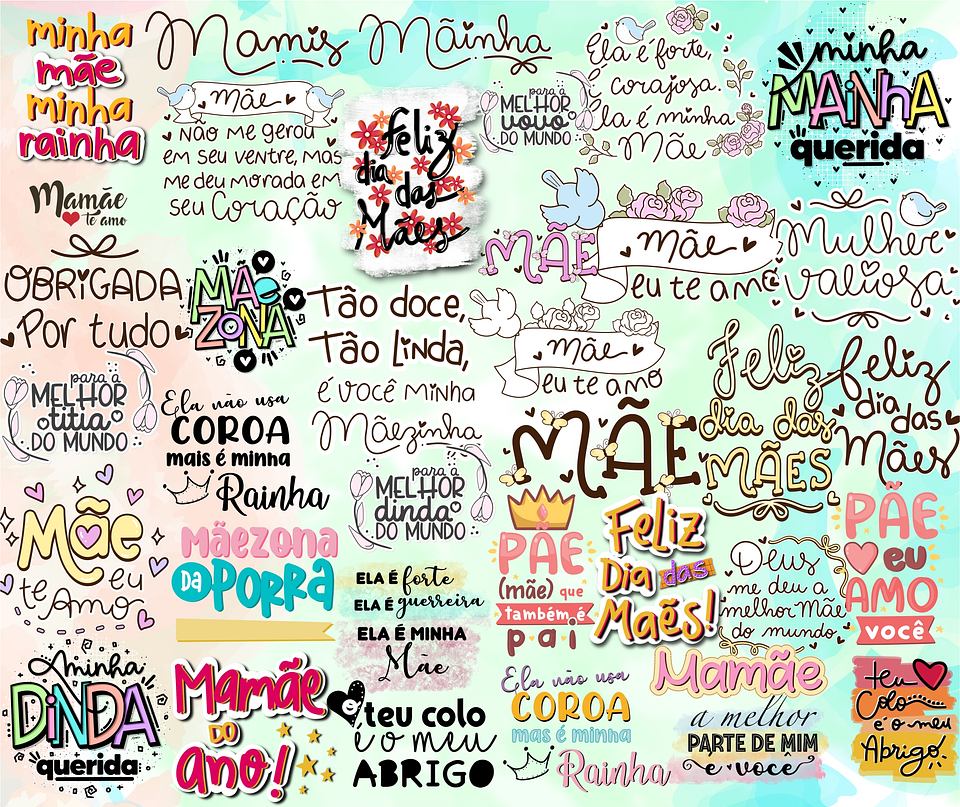 minha
mãe
minha
rainha
Mamis
Mãinha
Ela é forte,
é corajosa.
Ela é minha
Mãe
minha
MAiNHA
querida
Mãe
Não me gerou
em seu ventre, mas
me deu morada em
seu Coração
feliz
dia
das
Mães
para a
MELHOR
vovó
DO MUNDO
Mamãe
te amo
MÃE
Mãe
eu te amo
Mulher
valiosa
OBRIGADA
Por tudo
MÃE
ZONA
Tão doce,
Tão Linda,
é você minha
Mãezinha
Mãe
eu te amo
Feliz
dia das
MÃES
feliz
dia das
Mães
para a
MELHOR
titia
DO MUNDO
Ela não usa
COROA
mais é minha
Rainha
MÃE
para a
MELHOR
dinda
DO MUNDO
Mãe
eu
te Amo
Mãezona
DA PORRA
ELA É forte
ELA É guerreira
ELA É MINHA
Mãe
PÃE
(mãe) que
também é
pai
Feliz
Dia das
Maẽs!
Deus
me deu a
melhor Mãe
do mundo
PÃE
eu
AMO
você
A minha
DiNDA
querida
Mamãe
DO
ano!
teu colo
é o meu
ABRIGO
Ela não usa
COROA
mas é minha
Rainha
Mamãe
a melhor
PARTE DE MIM
é você
teu
Colo
é o meu
Abrigo!